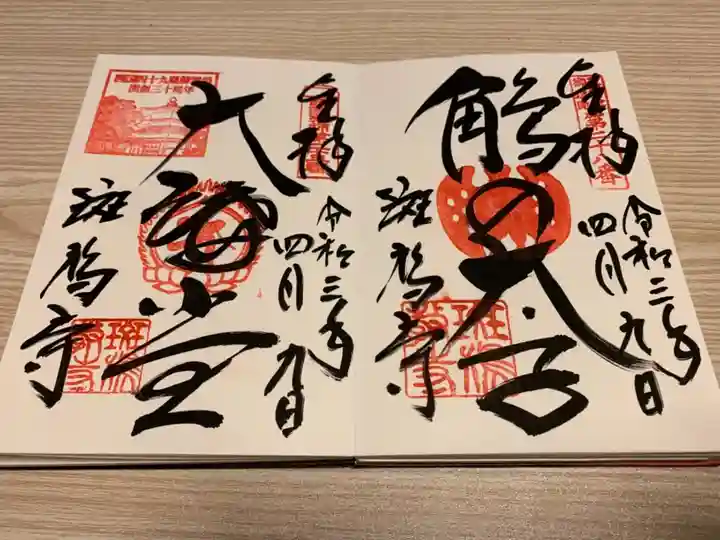 奉拝
令和三年
四月九日
鵤の太子
斑鳩寺
奉拝
令和三年
四月九日
大講堂
斑鳩寺
西国四十九薬師霊場
開創三十周年